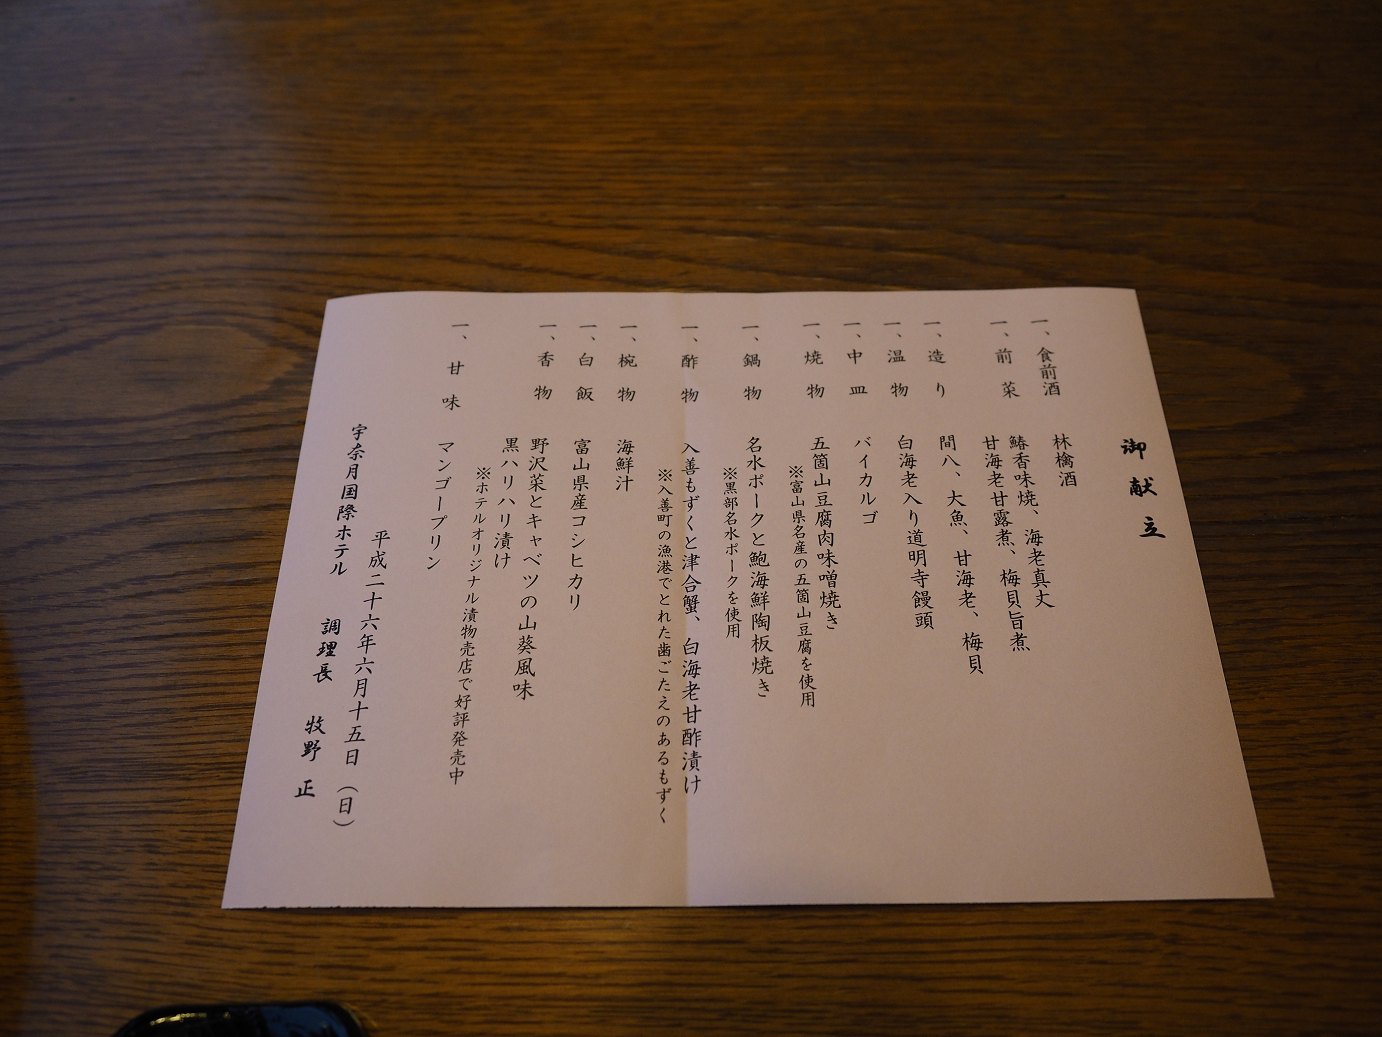 御献立
一、食前酒　林檎酒
一、前菜　鰆香味焼、海老真丈
甘海老甘露煮、梅貝旨煮
一、造り　間八、大魚、甘海老、梅貝
一、温物　白海老入り道明寺饅頭
一、中皿　バイカルゴ
一、焼物　五箇山豆腐肉味噌焼き
※富山県名産の五箇山豆腐を使用
一、鍋物　名水ポークと鮑海鮮陶板焼き
※黒部名水ポークを使用
一、酢物　入善もずくと津合蟹、白海老甘酢漬け
※入善町の漁港でとれた歯ごたえのあるもずく
一、椀物　海鮮汁
一、白飯　富山県産コシヒカリ
一、香物　野沢菜とキャベツの山葵風味
黒ハリハリ漬け
※ホテルオリジナル漬物売店で好評発売中
一、甘味　マンゴープリン
平成二十六年六月十五日（日）
宇奈月国際ホテル　調理長　牧野　正